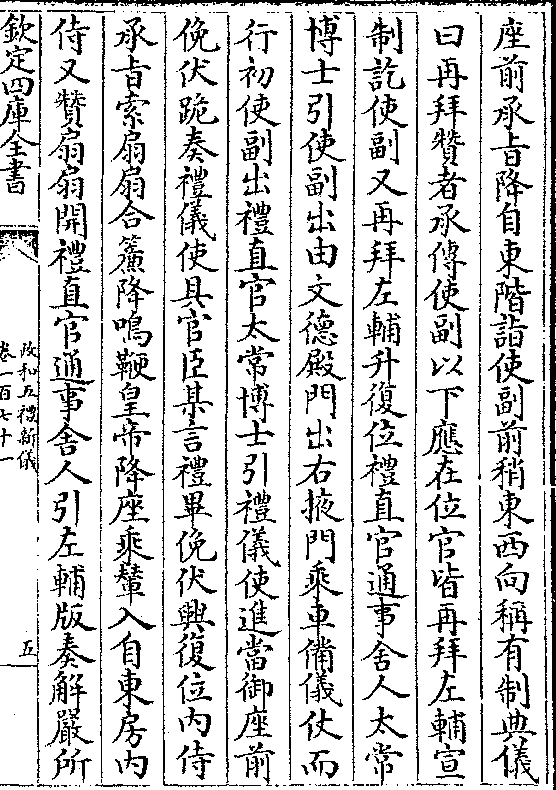 座前承㫖降自東階詣使副前稍東西向稱有制典儀
曰再拜贊者承傳使副以下應在位官皆再拜左輔宣
制訖使副又再拜左輔升復位禮直官通事舍人太常
博士引使副出由文德殿門出右掖門乘車備儀仗而
行初使副出禮直官太常博士引禮儀使進當御座前
俛伏跪奏禮儀使具官臣某言禮畢俛伏興復位内侍
承㫖索扇扇合簾降鳴鞭皇帝降座乘輦入自東房内
侍又贊扇扇開禮直官通事舍人引左輔版奏解嚴所
欽定四庫全書
政和五禮新儀
卷一百七十一
五